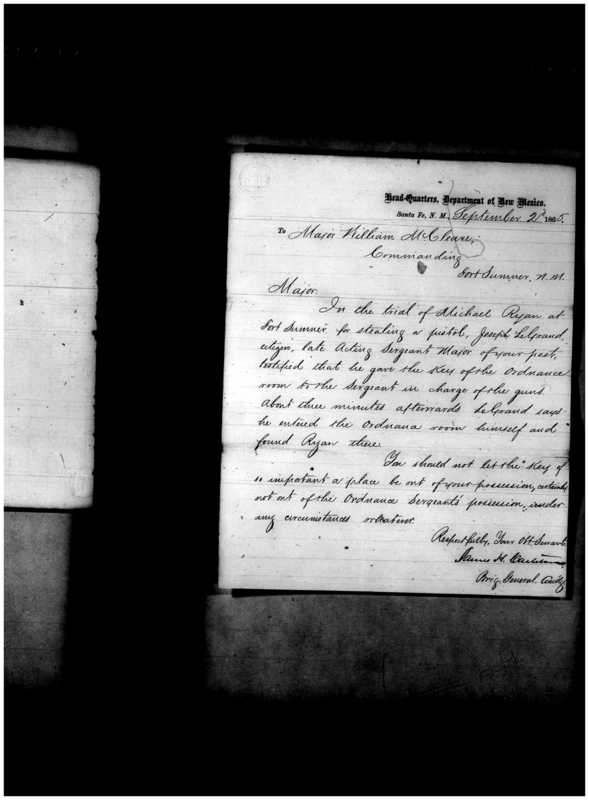 Head-Quarters, Department of New Mexico.
Santa Fe, N. M., September 2d 1865.
To Major William McCleave,
Commanding
Fort Sumner, N. M.
Major.
In the trial of Michael Ryan at
Fort Sumner for stealing a pistol, Joseph LeGrand,
citizen, late Acting Sergeant Major of your post,
testified that he gave the Key of the Ordnance
room to the Sergeant in charge of the guns.
About three minutes afterwards LeGrand says
he entered the Ordnance room himself and
found Ryan there.
You should not let the Key of
so important a place be out of your possession, certainly
not out of the Ordnance Sergeant's possession, under
any circumstances whatever.
Respectfully, Your Obt Servant
James H. Carleton
Brig. General. Comdg